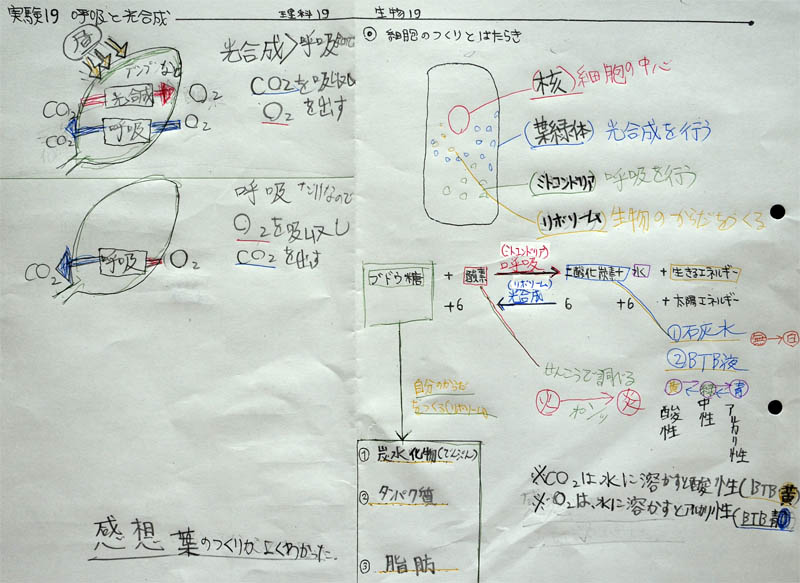 実験19 呼吸と光合成
理科19
生物19
昼
デンプンなど
光合成
呼吸
CO2
O2
CO2
O2
光合成>呼吸なので
CO2を吸収し
O2を出す
呼吸
CO2
O2
呼吸だけなので
O2を吸収し
CO2を出す
感想 葉のつくりがよくわかった。
◎ 細胞のつくりとはたらき
核 細胞の中心
葉緑体 光合成を行う
ミトコンドリア 呼吸を行う
リボソーム 生物のからだをつくる
ブドウ糖 + 酸素
(ミトコンドリア)
呼吸
二酸化炭素+水 +生きるエネルギー
(リボソーム)
光合成
+6 6 +6 +太陽エネルギー
①石灰水 無→白
②BTB液
黄 緑 青
酸性
中性
アルカリ性
せんこうで調べる
火 火
ポンッ
自分のからだ
をつくる(リボソーム)
① 炭水化物(でんぷん)
② タンパク質
③ 脂肪
※CO2は水に溶かすと酸性(BTB黄
※O2は、水に溶かすとアルカリ性(BTB青